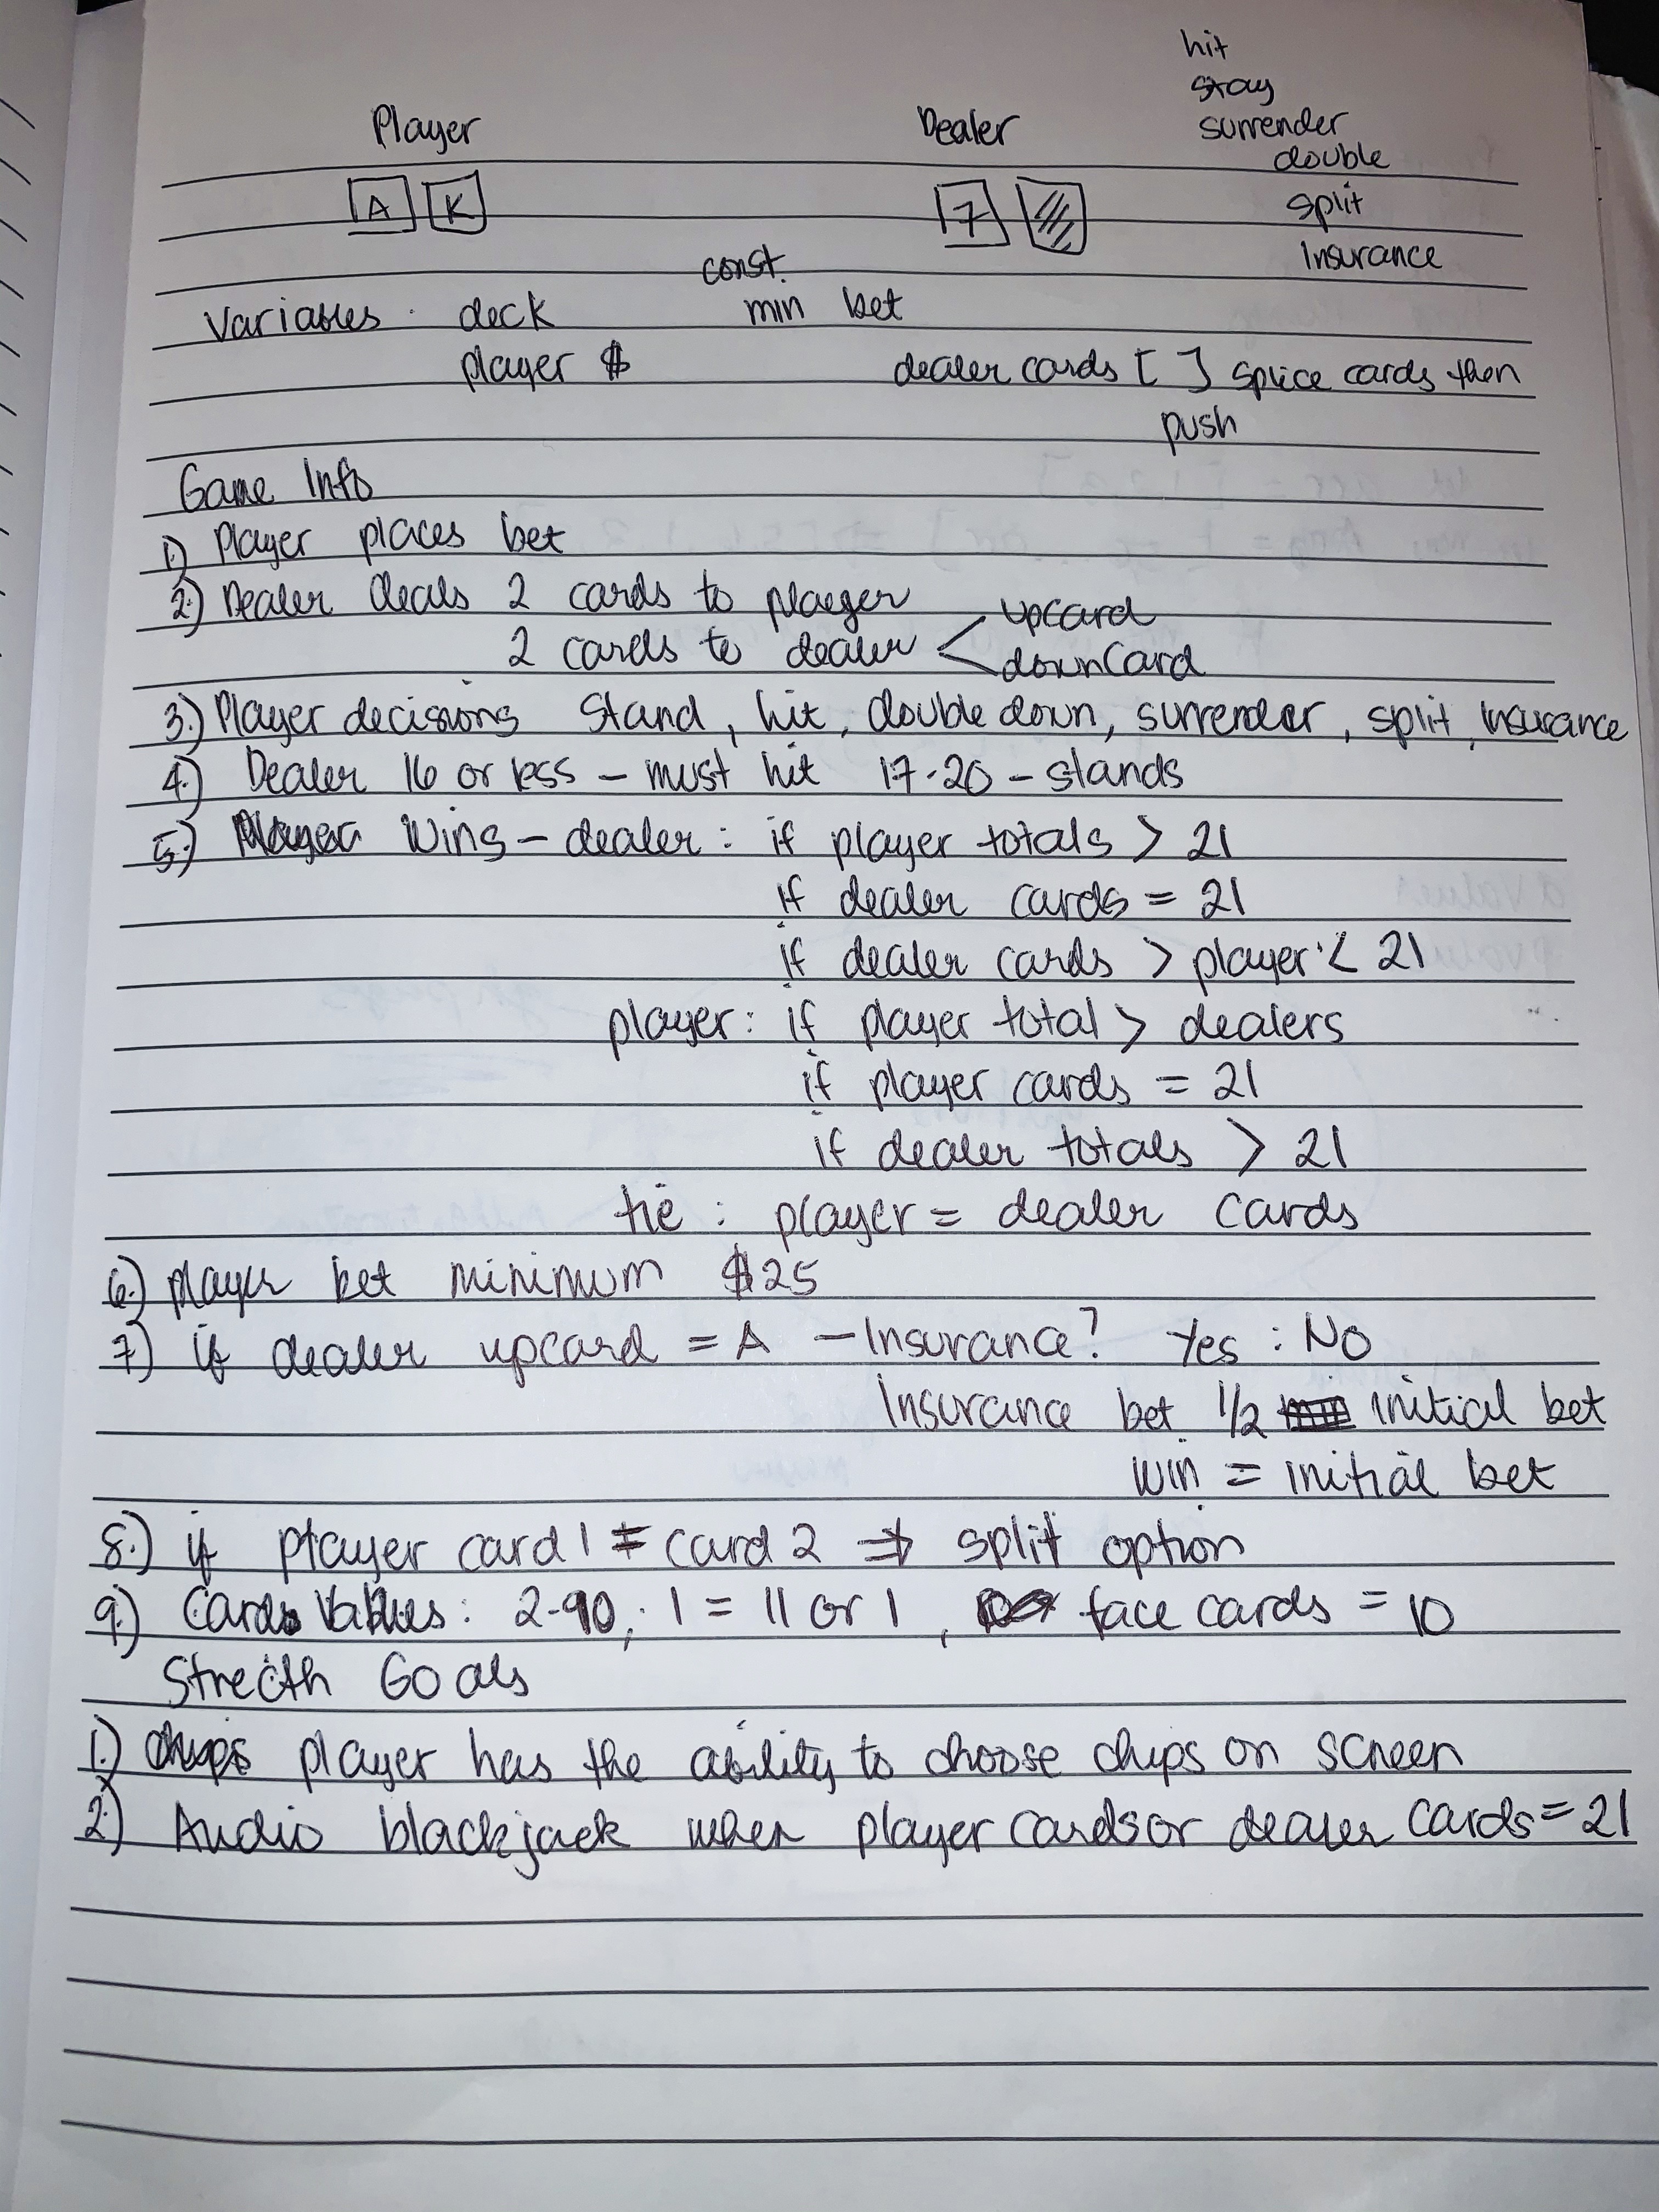 hit
stay
Player Dealer surrender
double
A K 7 split
Insurance
const.
Variables deck min bet
player $ dealer cards [ ] splice cards then
push
Game Info
1) Player places bet
2.) Dealer deals 2 cards to plaeger
2 cards to dealer < upcard
downCard
3.) Player decisions Stand, hit, double down, surrender, split, insurance
4.) Dealer 16 or less – must hit 17-20 – stands
5.) Wins – dealer: if player totals > 21
if dealer cards = 21
if dealer cards > player < 21
player: if player total > dealers
if player cards = 21
if dealer totals > 21
tie: player = dealer cards
6.) player bet minimum $25
7.) if dealer upcard = A – Insurance? Yes : No
Insurance bet 1/2 initial bet
win = initial bet
8.) if player card 1 = card 2 ⇒ split option
9.) Cards Values: 2-10, 1 = 11 or 1, face cards = 10
Strecth Goals
1.) player has the ability to choose chips on screen
2.) Audio blackjack when player cards or dealer cards = 21